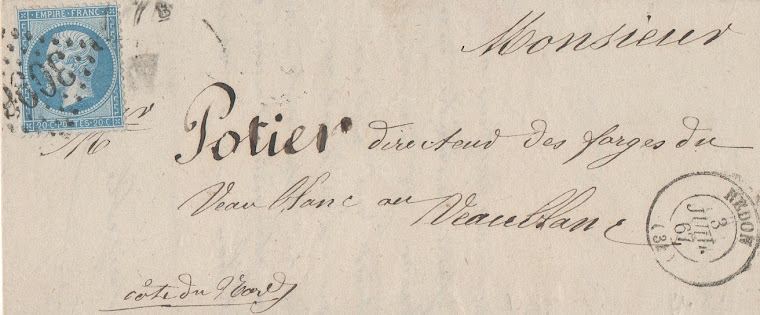 EMPIRE FRANC.
20 C. POSTES 20 C.
Monsieur
Mr Potier directeur des forges du
Veau blanc au Veaublanc
côte du Nord
REDON
3
JUIL.
(34)